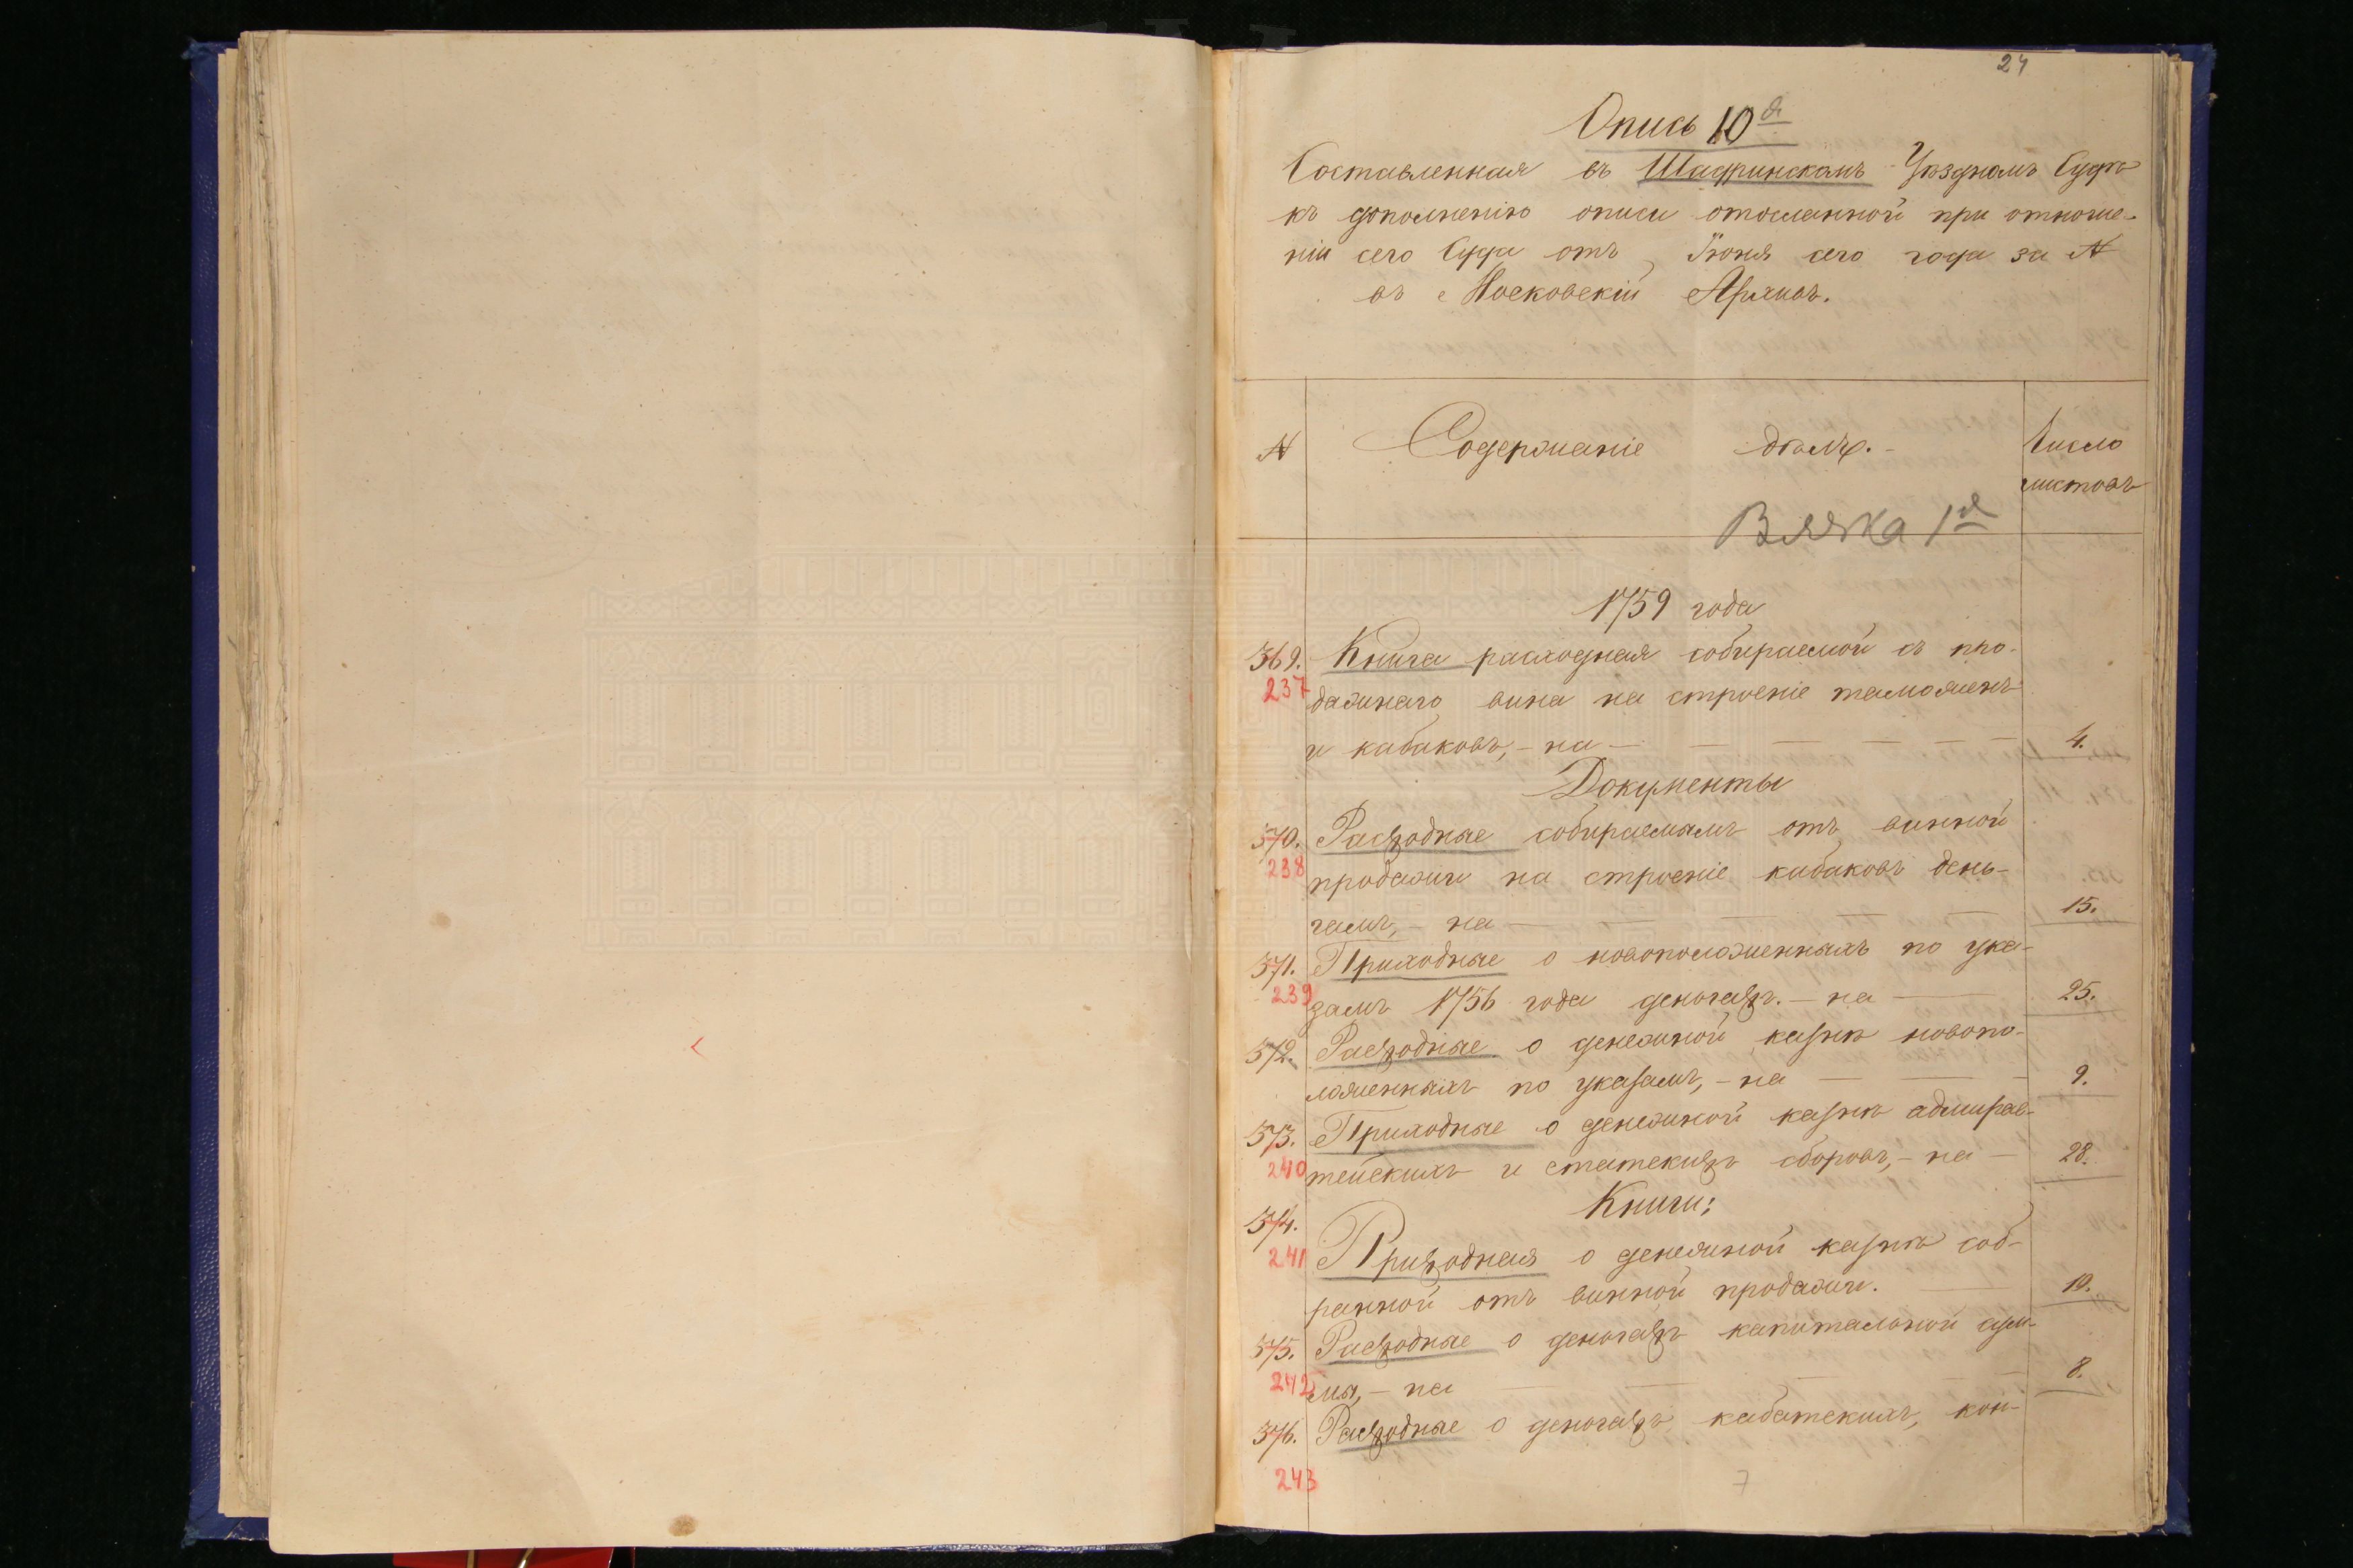 24
Опись 10я
Составленная въ Шадринскомъ Уѣздномъ Судѣ
къ дополненію описи отосланной при отноше-
ніи сего Суда отъ Іюня сего года за №
въ Московскій Архивъ.
№ Содержаніе дѣлъ. Число
листовъ
Вязка 1я
1759 года
369. Книга расходная собираемой съ про-
237 дажнаго вина на строеніе таможенъ
и кабаковъ, - на - 4.
Документы
370. Расходные собираемымъ отъ винной
238 продажи на строеніе кабаковъ день-
гамъ, - на 15.
371. Приходные о новоположенныхъ по ука-
239 замъ 1756 года деньгахъ. - на 25.
372. Расходные о денежной казнѣ новопо-
ложенныхъ по указамъ, - на 9.
373. Приходные о денежной казнѣ адмирал-
240 тейскихъ и статскихъ сборовъ, - на 28.
Книги:
374.
241 Приходная о денежной казнѣ соб-
ранной отъ винной продажи. 10.
375. Расходные о деньгахъ капитальной сум-
242 мы, - на 8.
376. Расходные о деньгахъ кабатскихъ, кон-
243
7